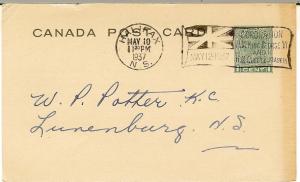 CANADA POST CARD
HALIFAX
MAY 10
1937
N.S.
MAY 12 1937
CORONATION
H.M. KING GEORGE VI
AND
H.M. QUEEN ELIZABETH
1 CENT 1
W. P. Potter K.C.
Lunenburg, N.S.